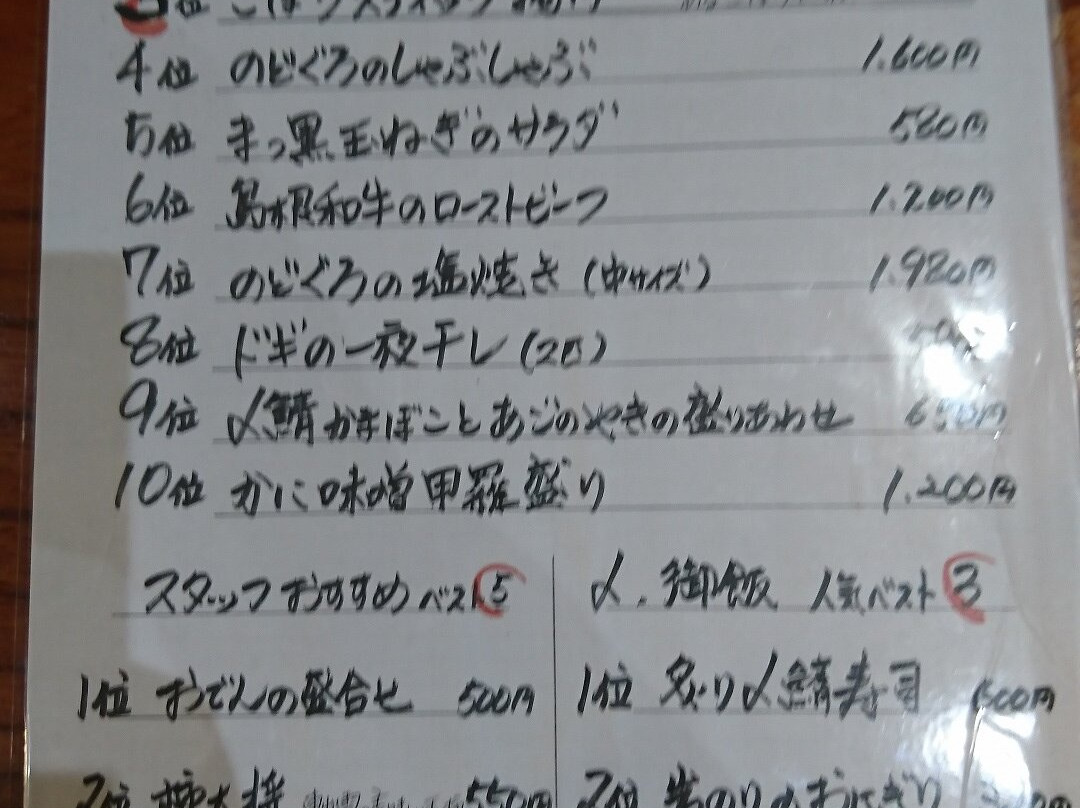 4位 のどぐろのしゃぶしゃぶ 1.600円
5位 まっ黒玉ねぎのサラダ 580円
6位 島根和牛のローストビーフ 1.200円
7位 のどぐろの塩焼き(中サイズ) 1.980円
8位 ドギの一夜干し(2匹)
9位 〆鯖かまぼことあごのやきの盛りあわせ 650円
10位 かに味噌甲羅盛り 1.200円
スタッフおすすめベスト5
1位 おでんの盛合せ 500円
2位 柿大将 550円
〆.御飯 人気ベスト3
1位 炙り〆鯖寿司
2位 岩のりのおにぎり